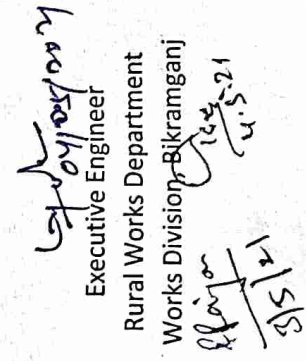 Executive Engineer
Rural Works Department
Works Division, Bikramganj
4.5.21
3/5/21